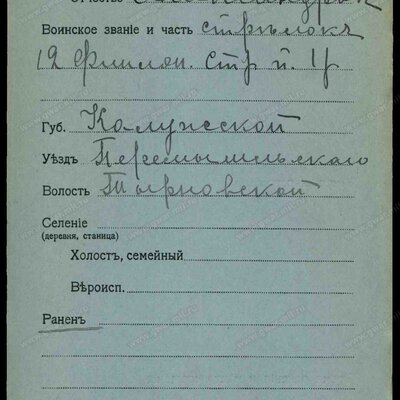 Отчество Александров
Воинское званіе и часть стрѣлокъ
12 Финлян. Стр. п.
Губ. Калужской
Уѣздъ Перемышльскаго
Волость
Селеніе
(деревня, станица)
Холостъ, семейный
Вѣроисп.
Раненъ